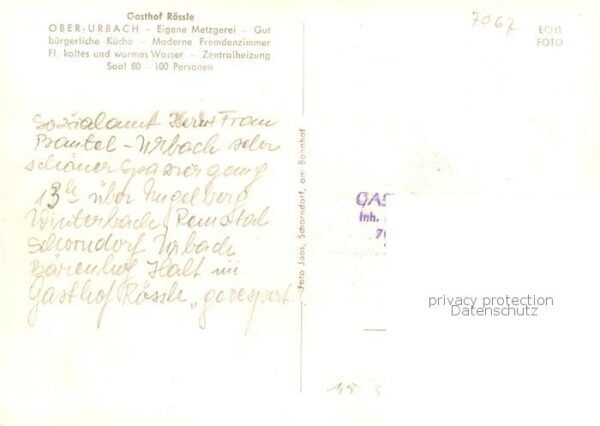 Gasthof Rössle
OBER-URBACH – Eigene Metzgerei – Gut
bürgerliche Küche – Moderne Fremdenzimmer
Fl. kaltes und warmes Wasser – Zentralheizung
Saal 80 – 100 Personen
7067
ECHT
FOTO
Sozialamt Frau
Bantel – Urbach sehr
schöner Spaziergang
über Engelberg
Winterbach, Remstal
Schorndorf Urbach
Bärenhof Halt im
Gasthof Rössle „gevespert
Foto Jaos, Schorndorf, am Bahnhof
GAS
Inh.
privacy protection
Datenschutz